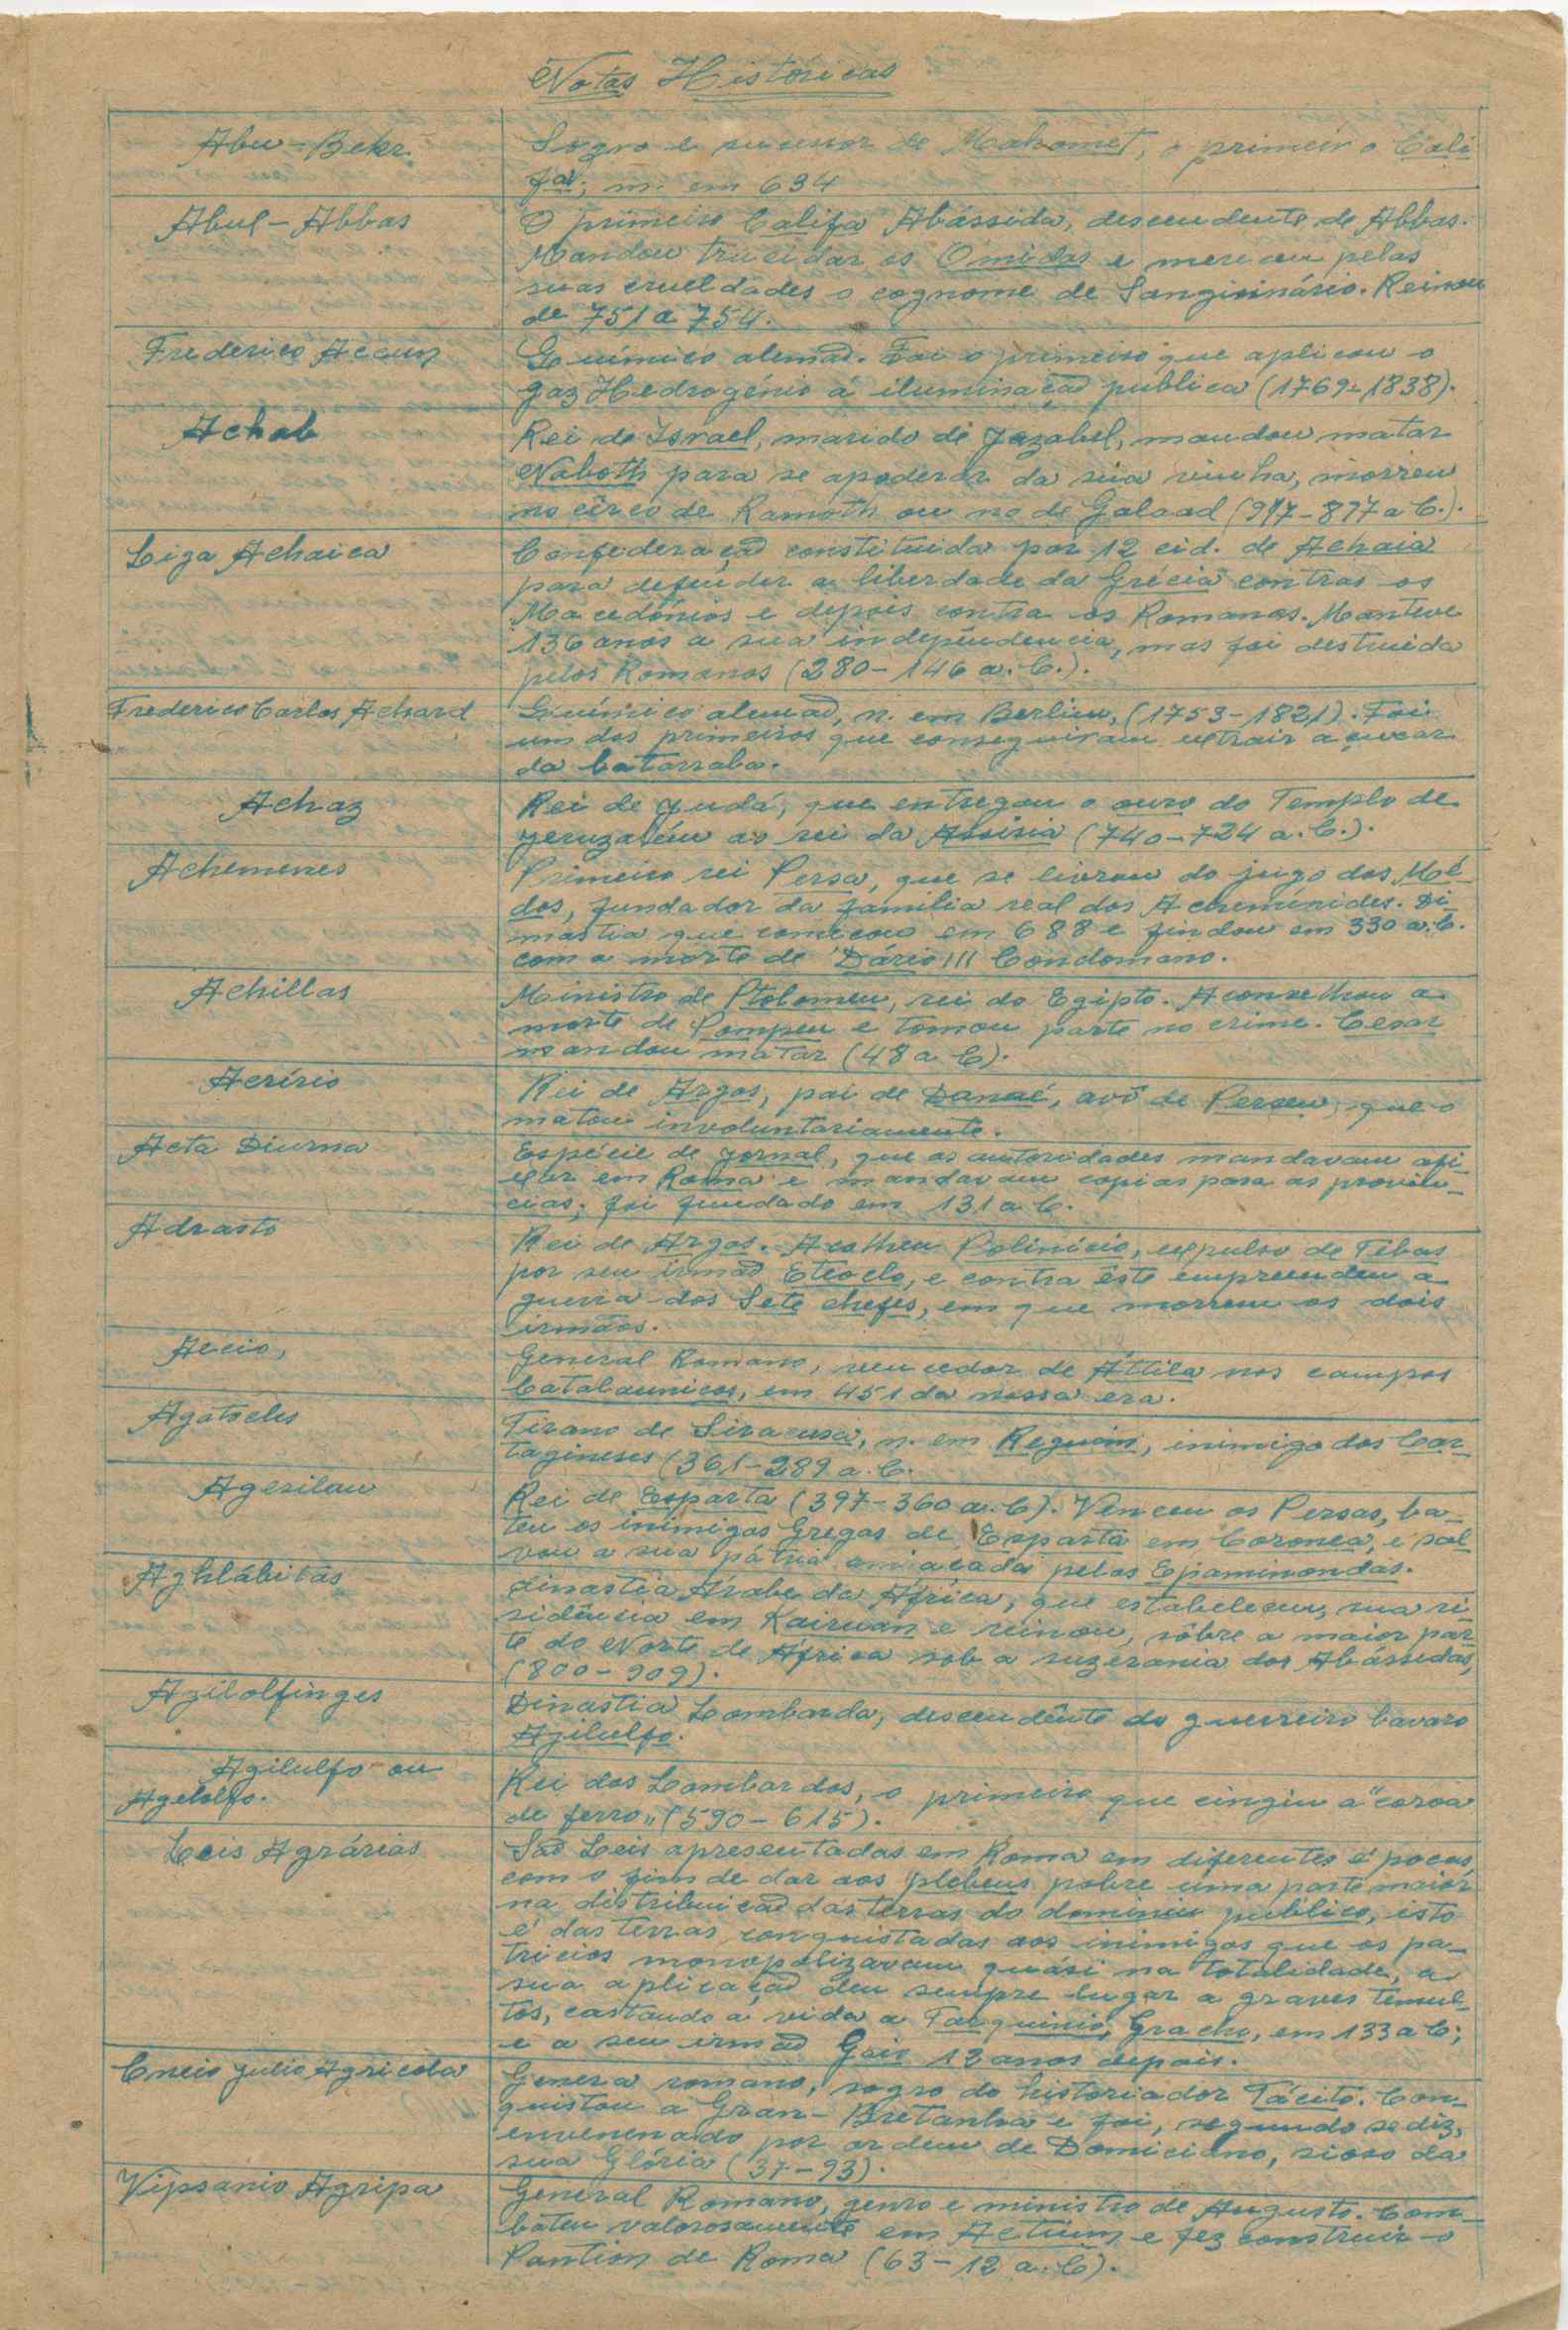 Notas Historicas
Abu-Bekr
Sogro e sucessor de Mahomet, o primeiro Cali
fa; m. em 634
Abul-Abbas
O primeiro Califa Abássida, descendente de Abbas.
Mandou trucidar os Omidas e mereceu pelas
suas crueldades o cognome de Sanginário. Reinou
de 751 a 754.
Frederico Accum
Químico alemão. Foi o primeiro que aplicou o
gaz Hedrogénio á iluminação publica (1769-1838).
Achab
Rei de Israel, marido de Jezabel, mandou matar
Naboth para se apoderar da sua vinha, morreu
no cêrco de Ramoth ou no de Galaad (917-897 a C.).
Liga Achaica
Confederação constituida por 12 cid. de Achaia
para defender a liberdade da Grécia contras os
Macedónios e depois contra os Romanos. Manteve
136 anos a sua independencia, mas foi destruida
pelos Romanos (280-146 a. C.).
Frederico Carlos Achard
Químico alemão, n. em Berlim, (1753-1821). Foi
um dos primeiros que conseguiram extrair açucar
da batarraba.
Achaz
Rei de Judá, que entregou o ouro do Templo de
Jeruzalém ao rei da Assiria (740-724 a. C.).
Achemenes
Primeiro rei Persa, que se livrou do jugo dos Mé-
dos, fundador da familia real dos Acheminides. Di
mastia que começou em 688 e findou em 330 a. C.
com a morte de Dário III Condomano.
Achillas
Ministro de Ptolomeu, rei do Egipto. Aconselhou a
morte de Pompeu e tomou parte no crime. Cesar
mandou matar (48 a C).
Acrírio
Rei de Argos, pai de Danaé, avô de Perseu, que o
matou involuntariamente.
Acta Diurna
Espécie de jornal, que as autoridades mandavam afi-
xar em Roma e mandavam copias para as provin-
cias; foi fundado em 131 a C.
Adrasto
Rei de Argos. Acolheu Polinício, expulso de Tébas
por seu irmão Etéoclo, e contra êste empreendeu a
guerra dos Sete chefes, em que morreu os dois
irmãos.
Aecio,
General Romano, vencedor de Áttila nos campos
Catalaunicos, em 451 da nossa era.
Agatocles
Tirano de Siracusa, n. em Reguim, inimigo dos Car-
tagineses (361-289 a. C.
Agesilau
Rei de Esparta (397-360 a. C). Venceu os Persas, ba-
teu os inimigos Gregos de Esparta em Coronea, e sal
vou a sua pátria amiaçada pelos Epaminondas.
Aghlábitas
dinastia Árabe da África, que estabeleceu, sua ri
sidência em Kairuan e reinou, sôbre a maior par
te do Norte de África sob a suzerania dos Abássidas,
(800-909).
Agilolfinges
Dinastia Lombarda, descendênte do guerreiro bavaro
Agilulfo.
Agilulfo ou
Agelolfo.
Rei dos Lombardos, o primeiro que cingiu a "coroa
de ferro" (590-615).
Leis Agrárias
São Leis apresentadas em Roma em diferentes épocas,
com o fim de dar aos plebeus pobre uma parte maior
na distribuição das terras do dominiu publico, isto
é das terras conquistadas aos inimigos que os pa-
tricios monopolizavam quási na totalidade, a
sua aplicação deu sempre lugar a graves tumul-
tos, castando a vida a Tarquinio, Gracho, em 133 a C;
e a seu irmão Gaio 12 anos depois.
Cneio Julio Agricola
Genera romano, sogro do historiador Tácito. Con-
quistou a Gran-Bretanha e foi, segundo se diz,
envenenado por ordem de Domiciano, sioso da
sua Glória (37-93).
Vipsanio Agripa
General Romano, genro e ministro de Augusto. Com-
bateu valorosamente em Actium e fez construir o
Pantion de Roma (63-12 a. C).